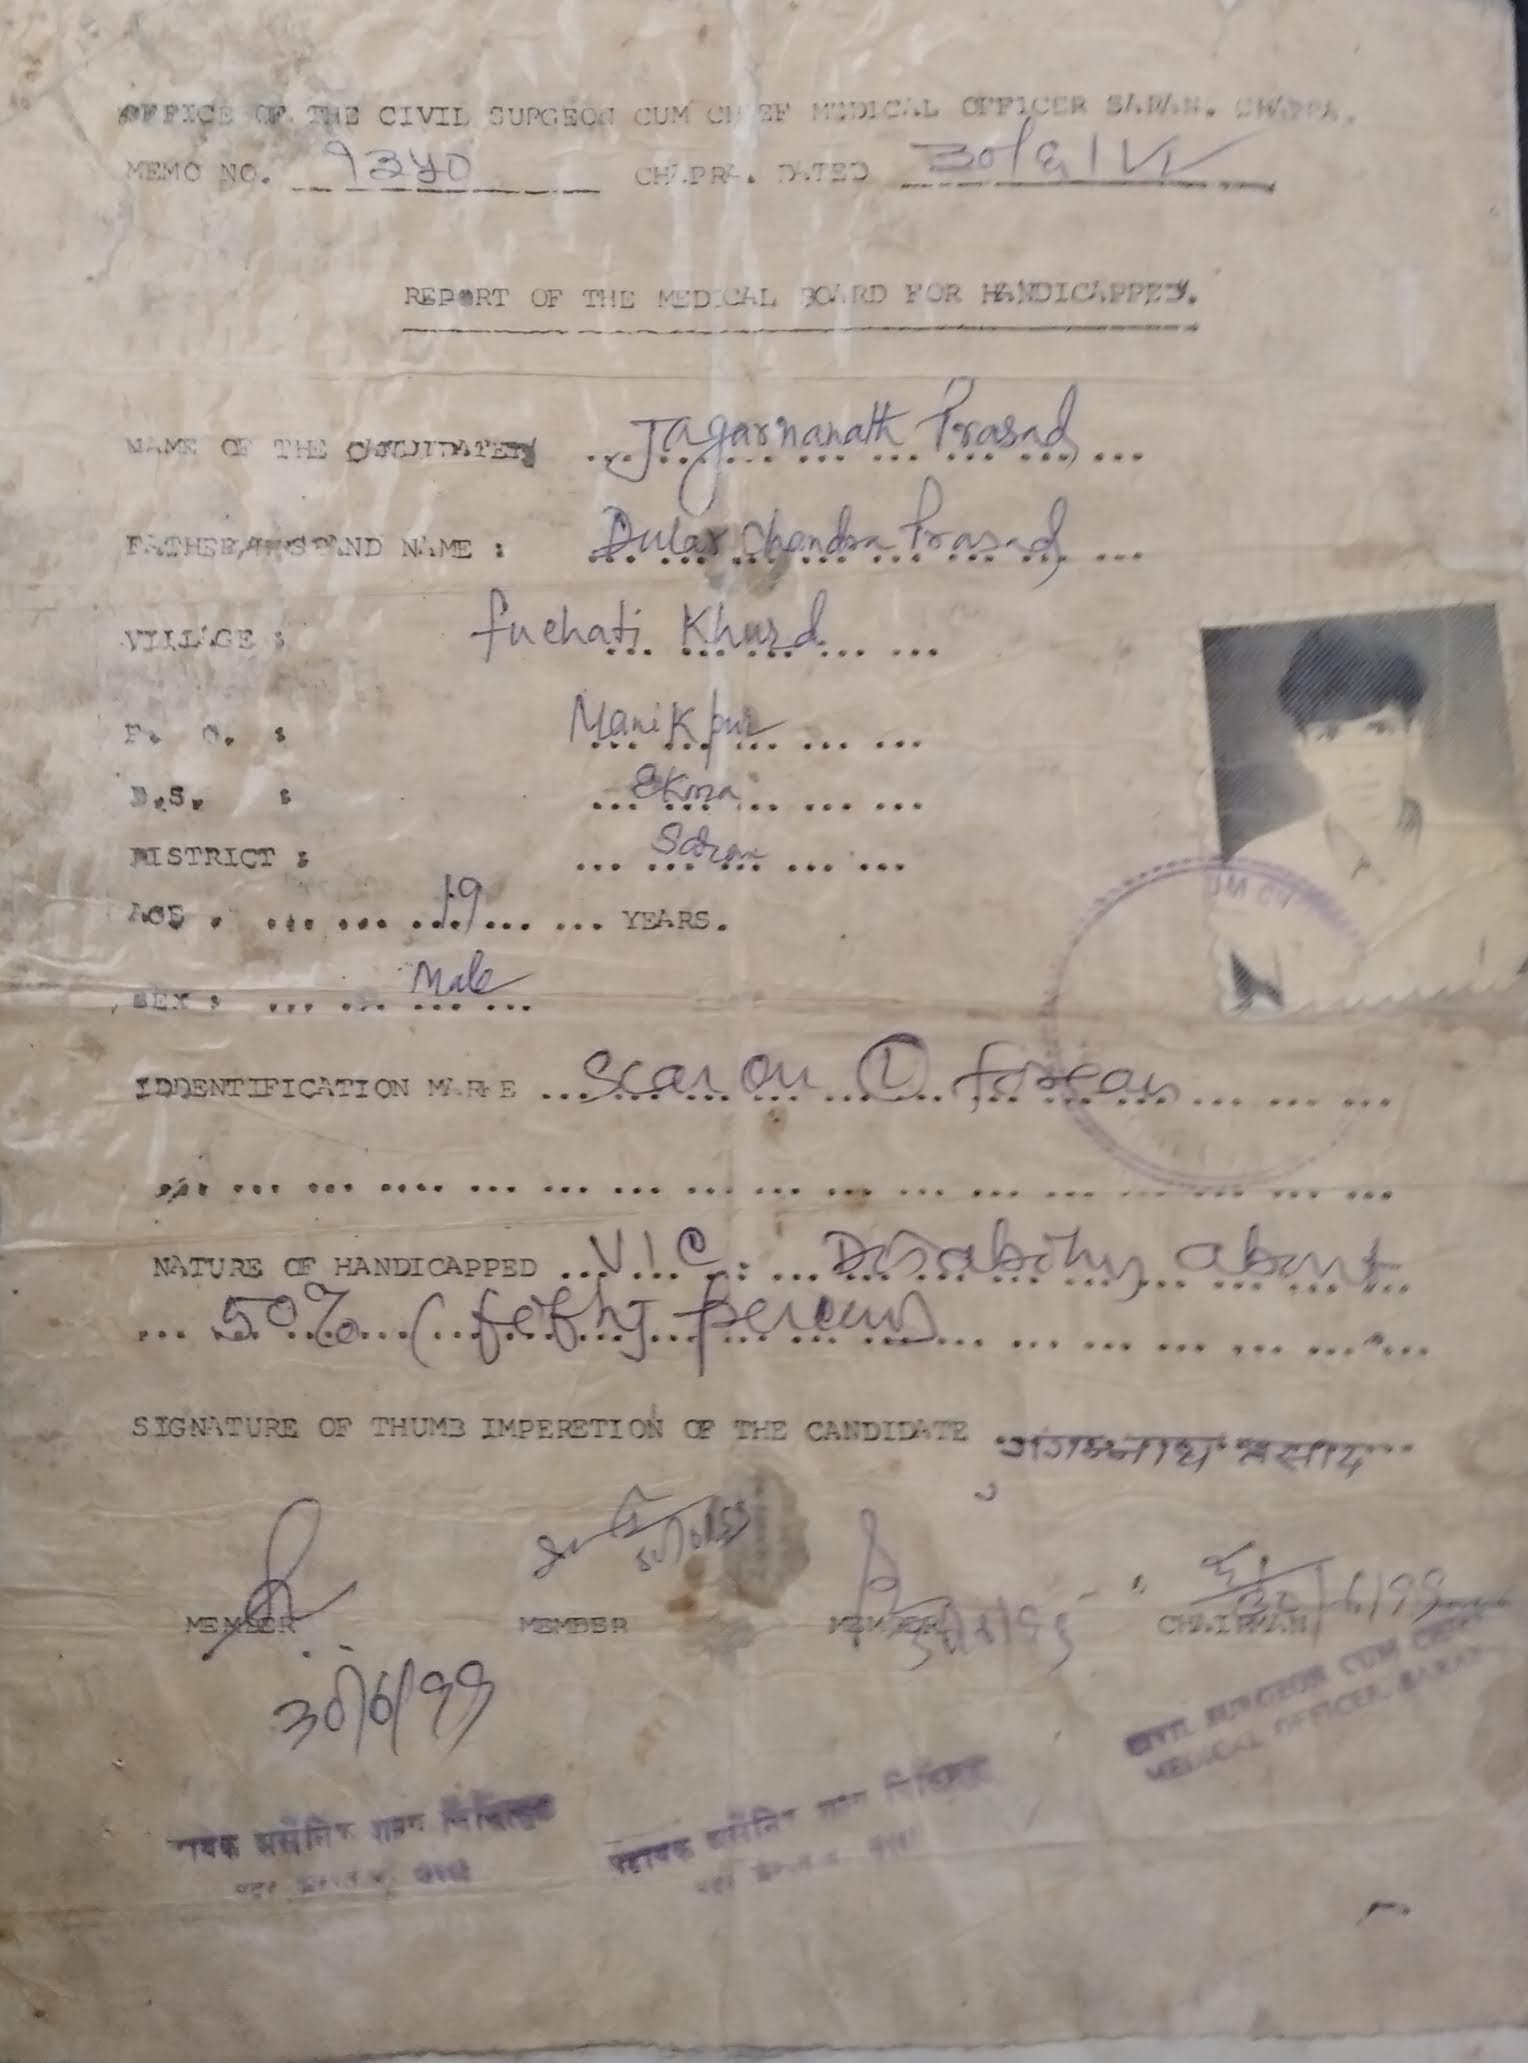 OFFICE OF THE CIVIL SURGEON CUM CHIEF MEDICAL OFFICER SARAN. CHAPRA.
MEMO NO. CHAPRA. DATED
REPORT OF THE MEDICAL BOARD FOR HANDICAPPED.
NAME OF THE CANDIDATE Jagarnanath Prasad
FATHER/HUSBAND NAME : Dular Chandra Prasad
VILLAGE : Fuchati Khurd
P. O. : Manikpur
P.S. : Ekma
DISTRICT : Saran
AGE . 19 YEARS.
SEX : Male
IDDENTIFICATION MARKE Scar on (L)
NATURE OF HANDICAPPED Disability about
50% (
SIGNATURE OF THUMB IMPERETION OF THE CANDIDATE प्रसाद
MEMBER MEMBER MEMBER CHAIRMAN
30/6/99
CIVIL SURGEON CUM CHIEF
MEDICAL OFFICER, SARAN